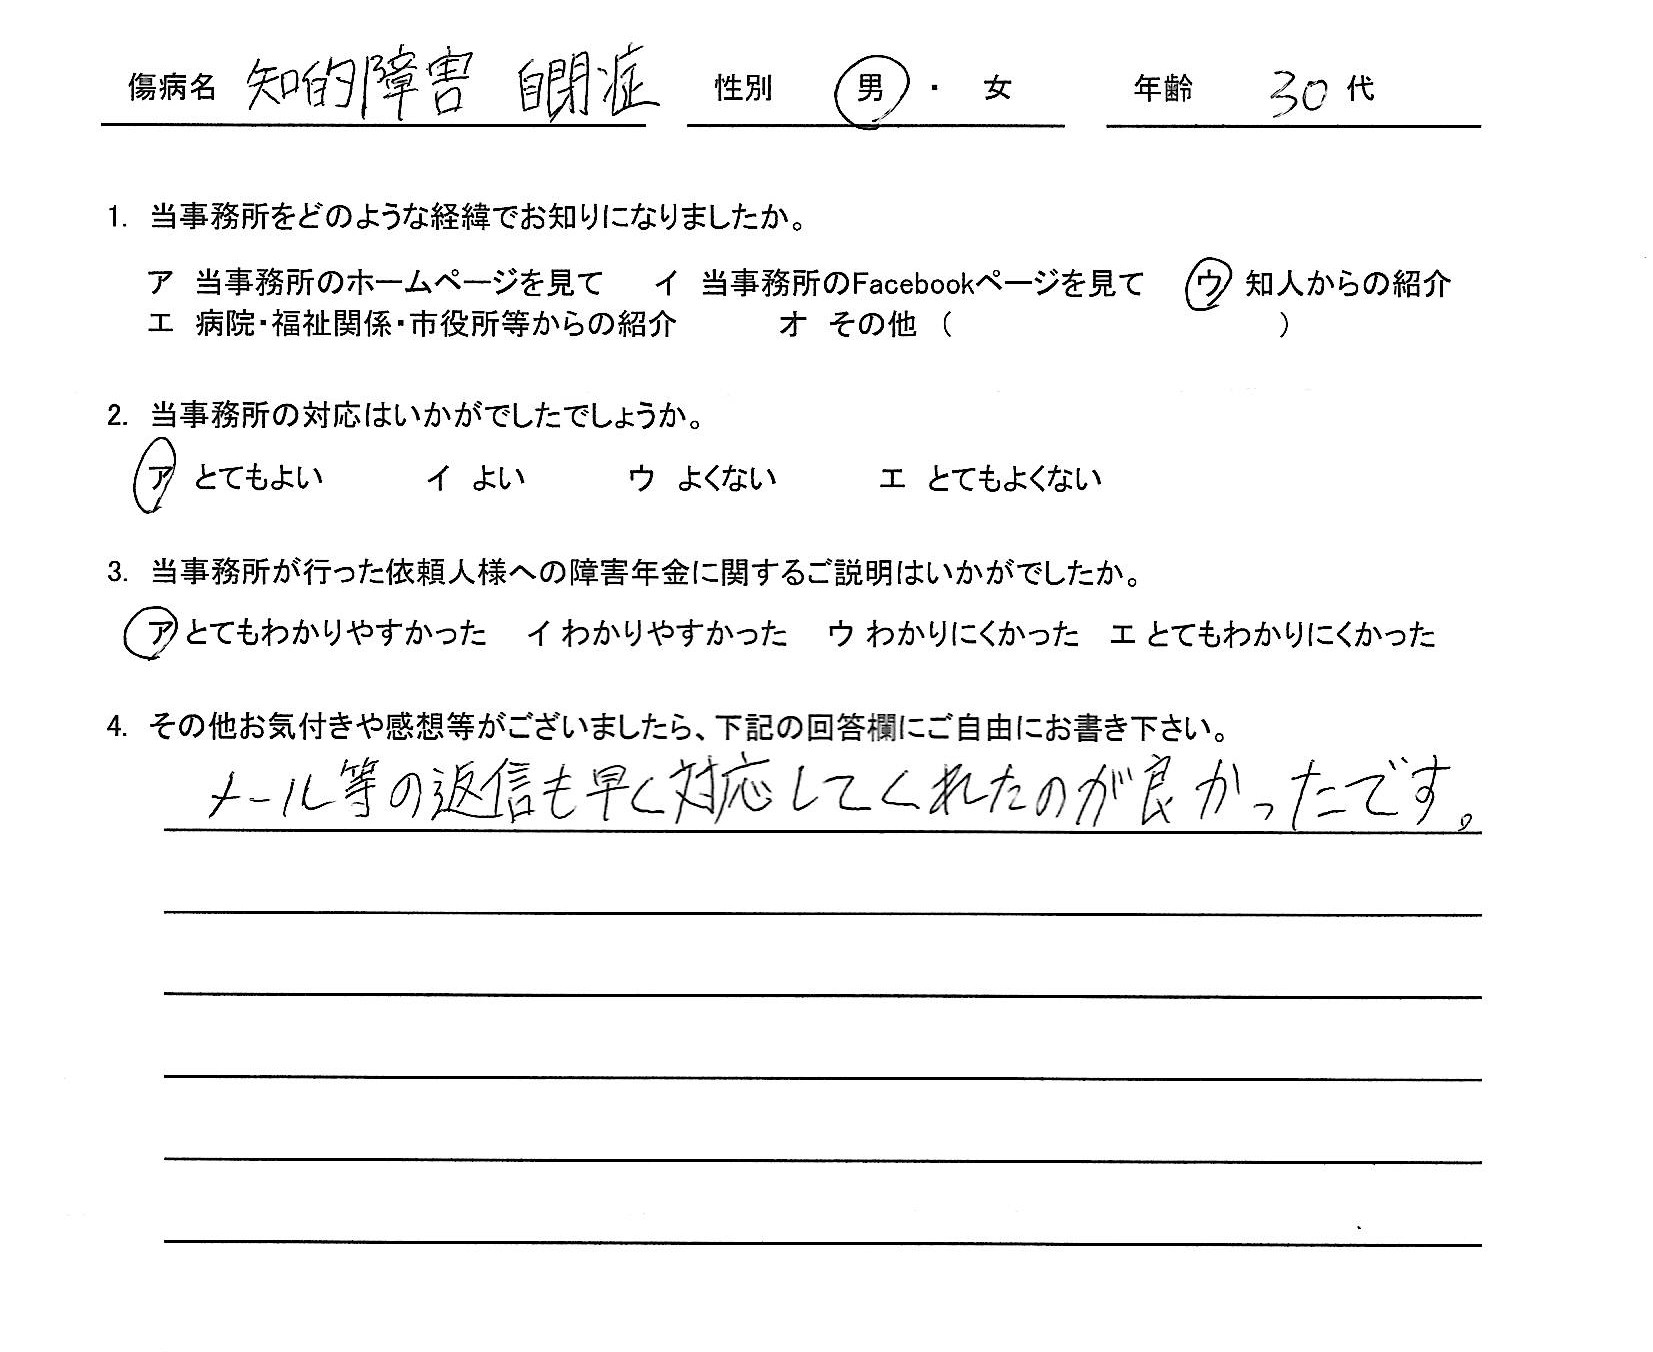 傷病名 知的障害 自閉症 性別 男 ・ 女 年齢 30 代
1. 当事務所をどのような経緯でお知りになりましたか。
ア 当事務所のホームページを見て イ 当事務所のFacebookページを見て ウ 知人からの紹介
エ 病院・福祉関係・市役所等からの紹介 オ その他 ( )
2. 当事務所の対応はいかがでしたでしょうか。
ア とてもよい イ よい ウ よくない エ とてもよくない
3. 当事務所が行った依頼人様への障害年金に関するご説明はいかがでしたか。
ア とてもわかりやすかった イ わかりやすかった ウ わかりにくかった エ とてもわかりにくかった
4. その他お気付きや感想等がございましたら、下記の回答欄にご自由にお書き下さい。
メール等の返信も早く対応してくれたのが良かったです。